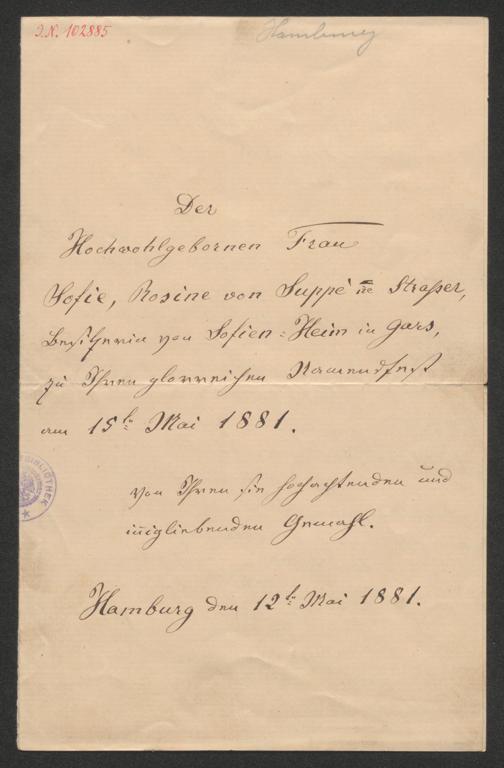 I.N. 102885
Hamburg
Der
Hochwohlgebornen Frau
Sofie, Rosine von Suppé n̅e̅ Straßer,
Besitzerin von Sofien=Heim in Gars,
zu Ihren glorreichen Namensfest
am 15tn Mai 1881.
von Ihren sie hochachtenden und
in̅igliebenden Gemahl.
Hamburg den 12tn Mai 1881.
BIBLIOTHEK